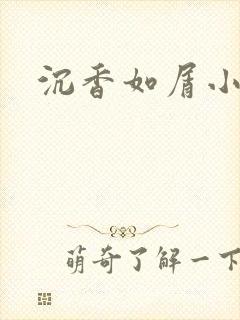 沉香如屑小
萌奇了解一下